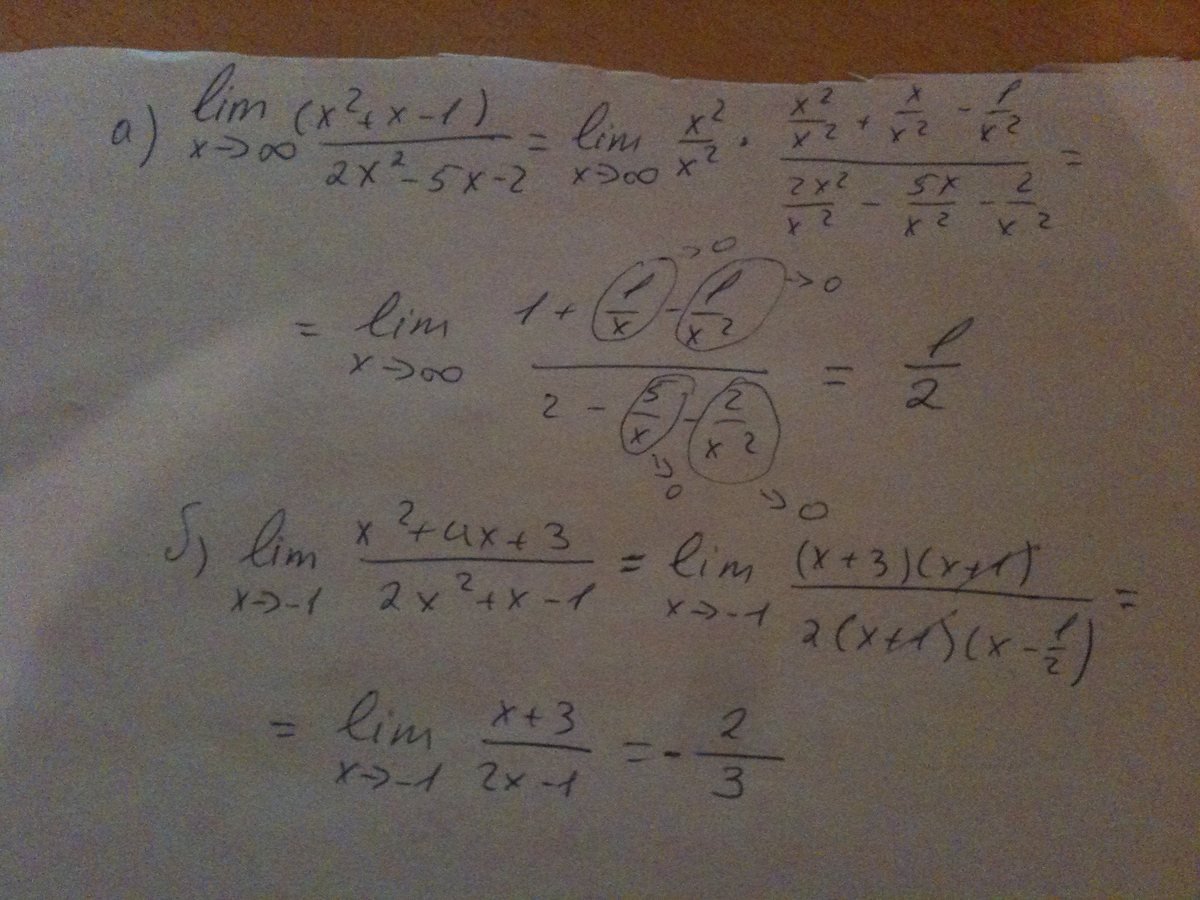 а) lim x→∞ (x²+x-1) / (2x²-5x-2) = lim x→∞ x²/x² · (x²/x² + x/x² - 1/x²) / (2x²/x² - 5x/x² - 2/x²) =
= lim x→∞ (1 + 1/x →0 - 1/x² →0) / (2 - 5/x →0 - 2/x² →0) = 1/2
б) lim x→-1 (x²+4x+3) / (2x²+x-1) = lim x→-1 (x+3)(x+1) / 2(x+1)(x-1/2) =
= lim x→-1 (x+3) / (2x-1) = -2/3